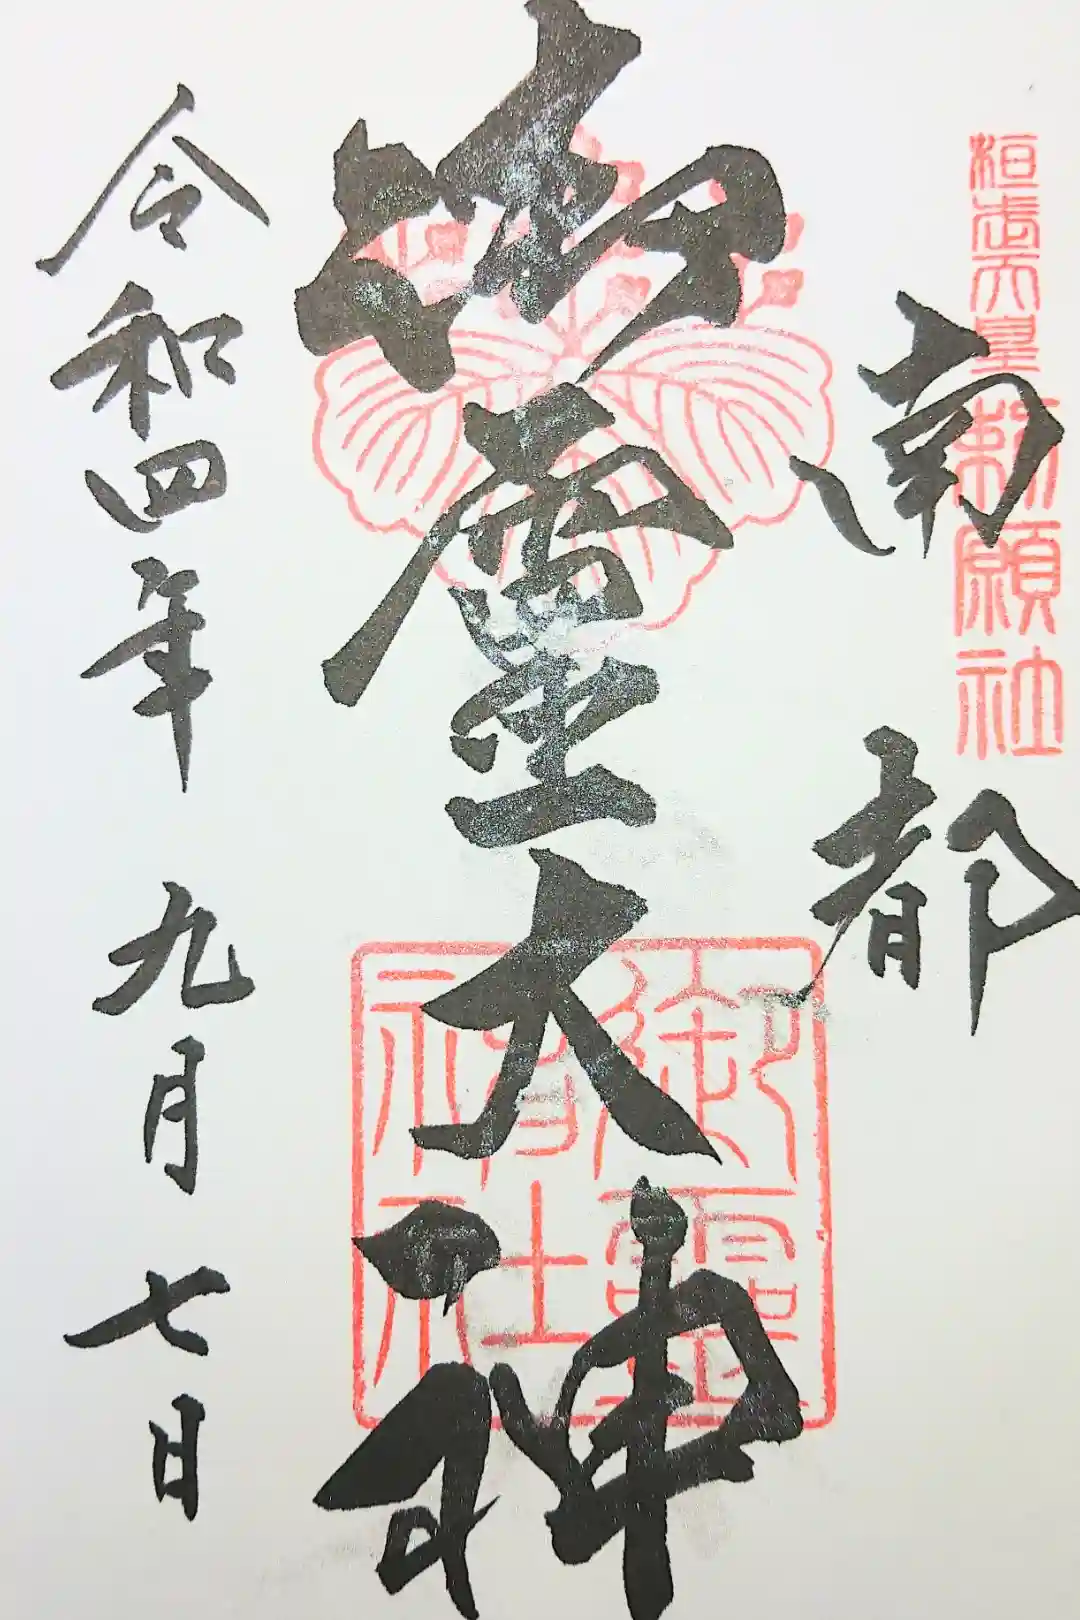 桓武天皇勅願社
南都
御霊大神
御霊神社
令和四年九月七日